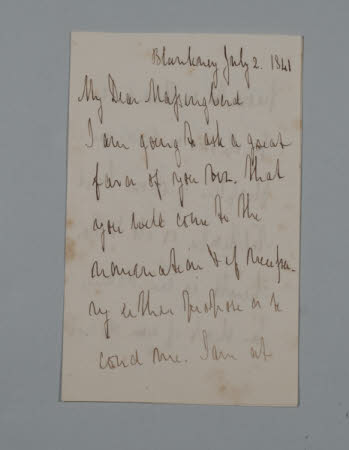 Blankney July 2. 1841
My Dear Massingberd
I am going to ask a great
favor of you viz. that
you will come to the
nomination & if necessa-
ry either propose or se
cond me. I am at